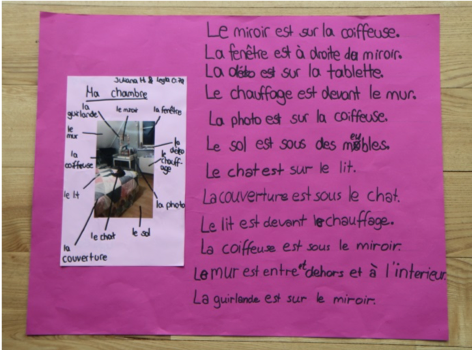 Juliana H. & Leyla
Ma chambre
la guirlande
le miroir
la fenêtre
le mur
la déco
la coiffeuse
le chauff-
age
le lit
la photo
le chat
le sol
la couverture
Le miroir est sur la coiffeuse.
La fenêtre est à droite du miroir.
La déco est sur la tablette.
Le chauffage est devant le mur.
La photo est sur la coiffeuse.
Le sol est sous des meubles.
Le chat est sur le lit.
La couverture est sous le chat.
Le lit est devant le chauffage.
La coiffeuse est sous le miroir.
Le mur est entre dehors et à l'interieur.
La guirlande est sur le miroir.